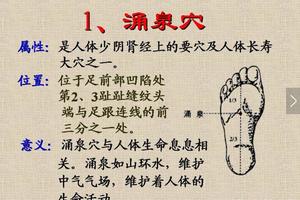 1、涌泉穴
属性：是人体少阴肾经上的要穴及人体长寿
大穴之一。
位置：位于足前部凹陷处
第2、3趾趾缝纹头
端与足跟连线的前
三分之一处。
1/3
涌泉
2/3
意义：涌泉穴与人体生命息息相
关。涌泉如山环水，维护
中气气场，维护着人体的
生命活动